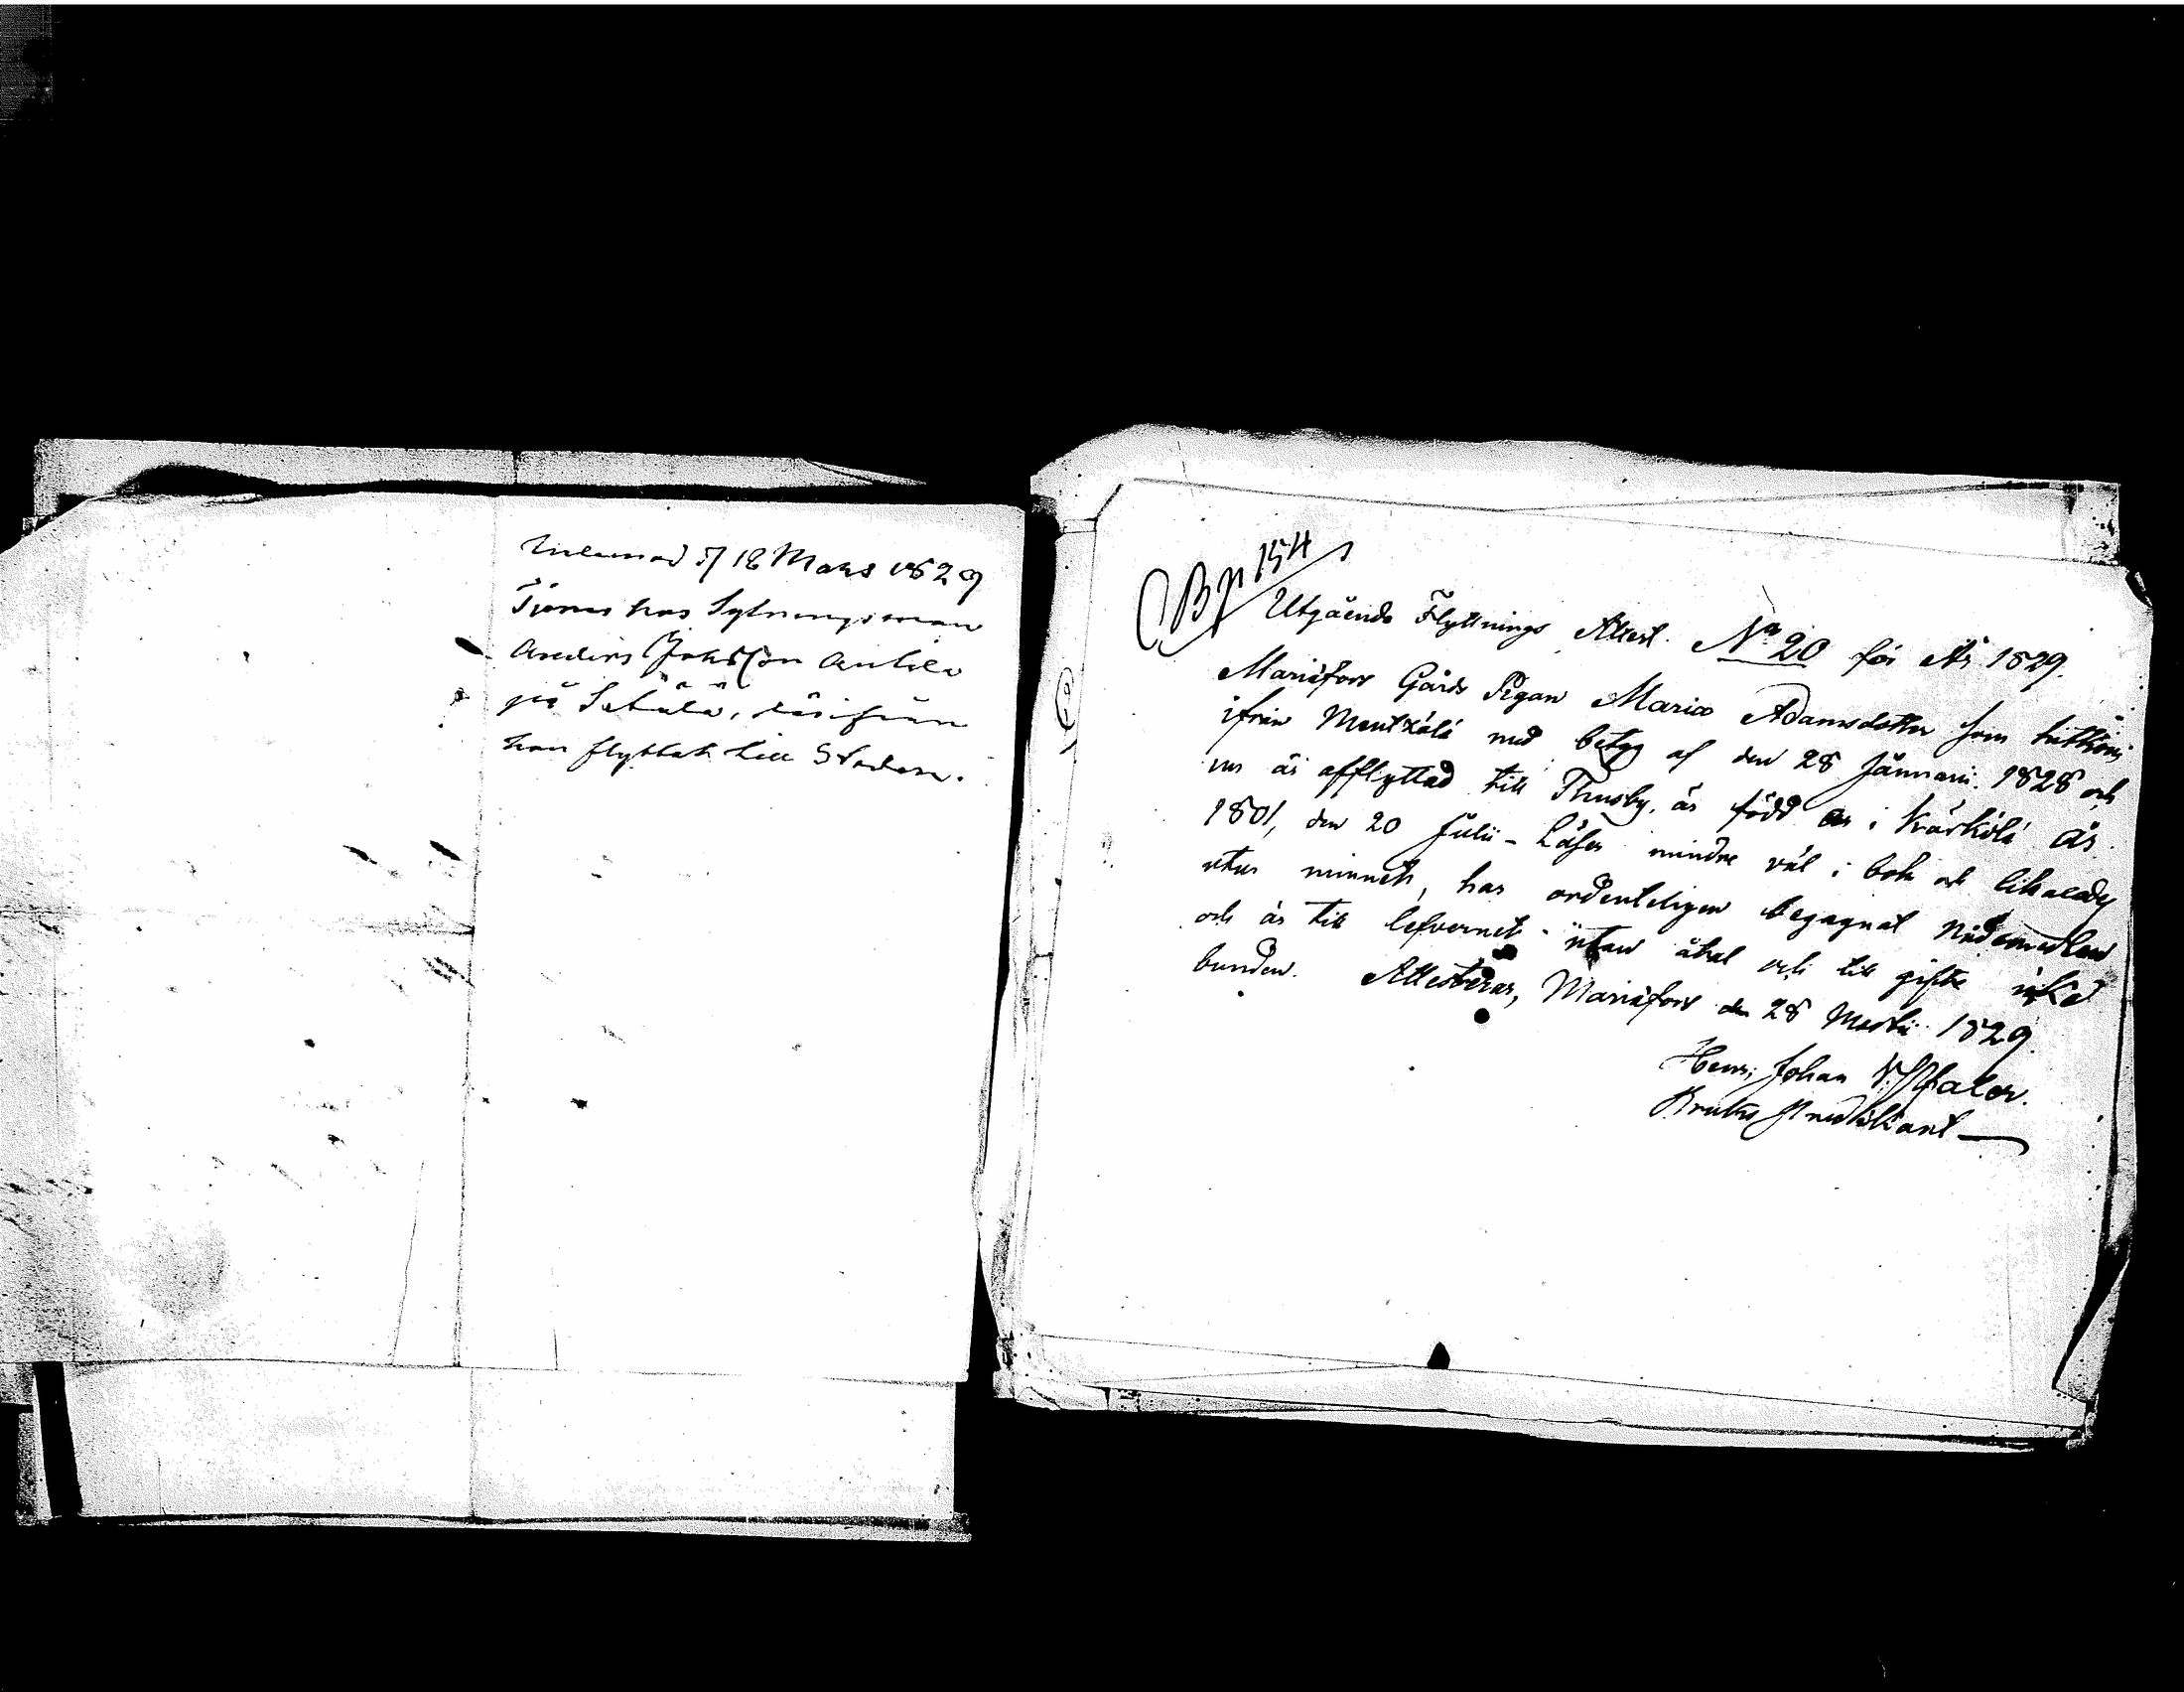 Inlemnad d 18 Mars 1829
Tjenar hos Sytningsman
Anders Johsson Anttila
på Skälä, därifrån
hon flyttat till Staden.
154
Utgående Flyttnings Attest. No 20 för År 1829.
Mariæfors Gårds Pigan Maria Adamsdotter som hitkom
ifrån Mentzälä med betyg af den 28 Januarii 1828 och
nu är afflyttad till Thusby, är född i Kärkölä år
1801, den 20 Julii - Läser mindre väl i bok och likaledes
utur minnet, har ordenteligen begagnat Nådemedlen
och är till lefvernet utan åtal och till gifte icke
bunden. Attesteras, Mariæfors den 28 Martii 1829.
Henr: Johan
Bruks Predikant